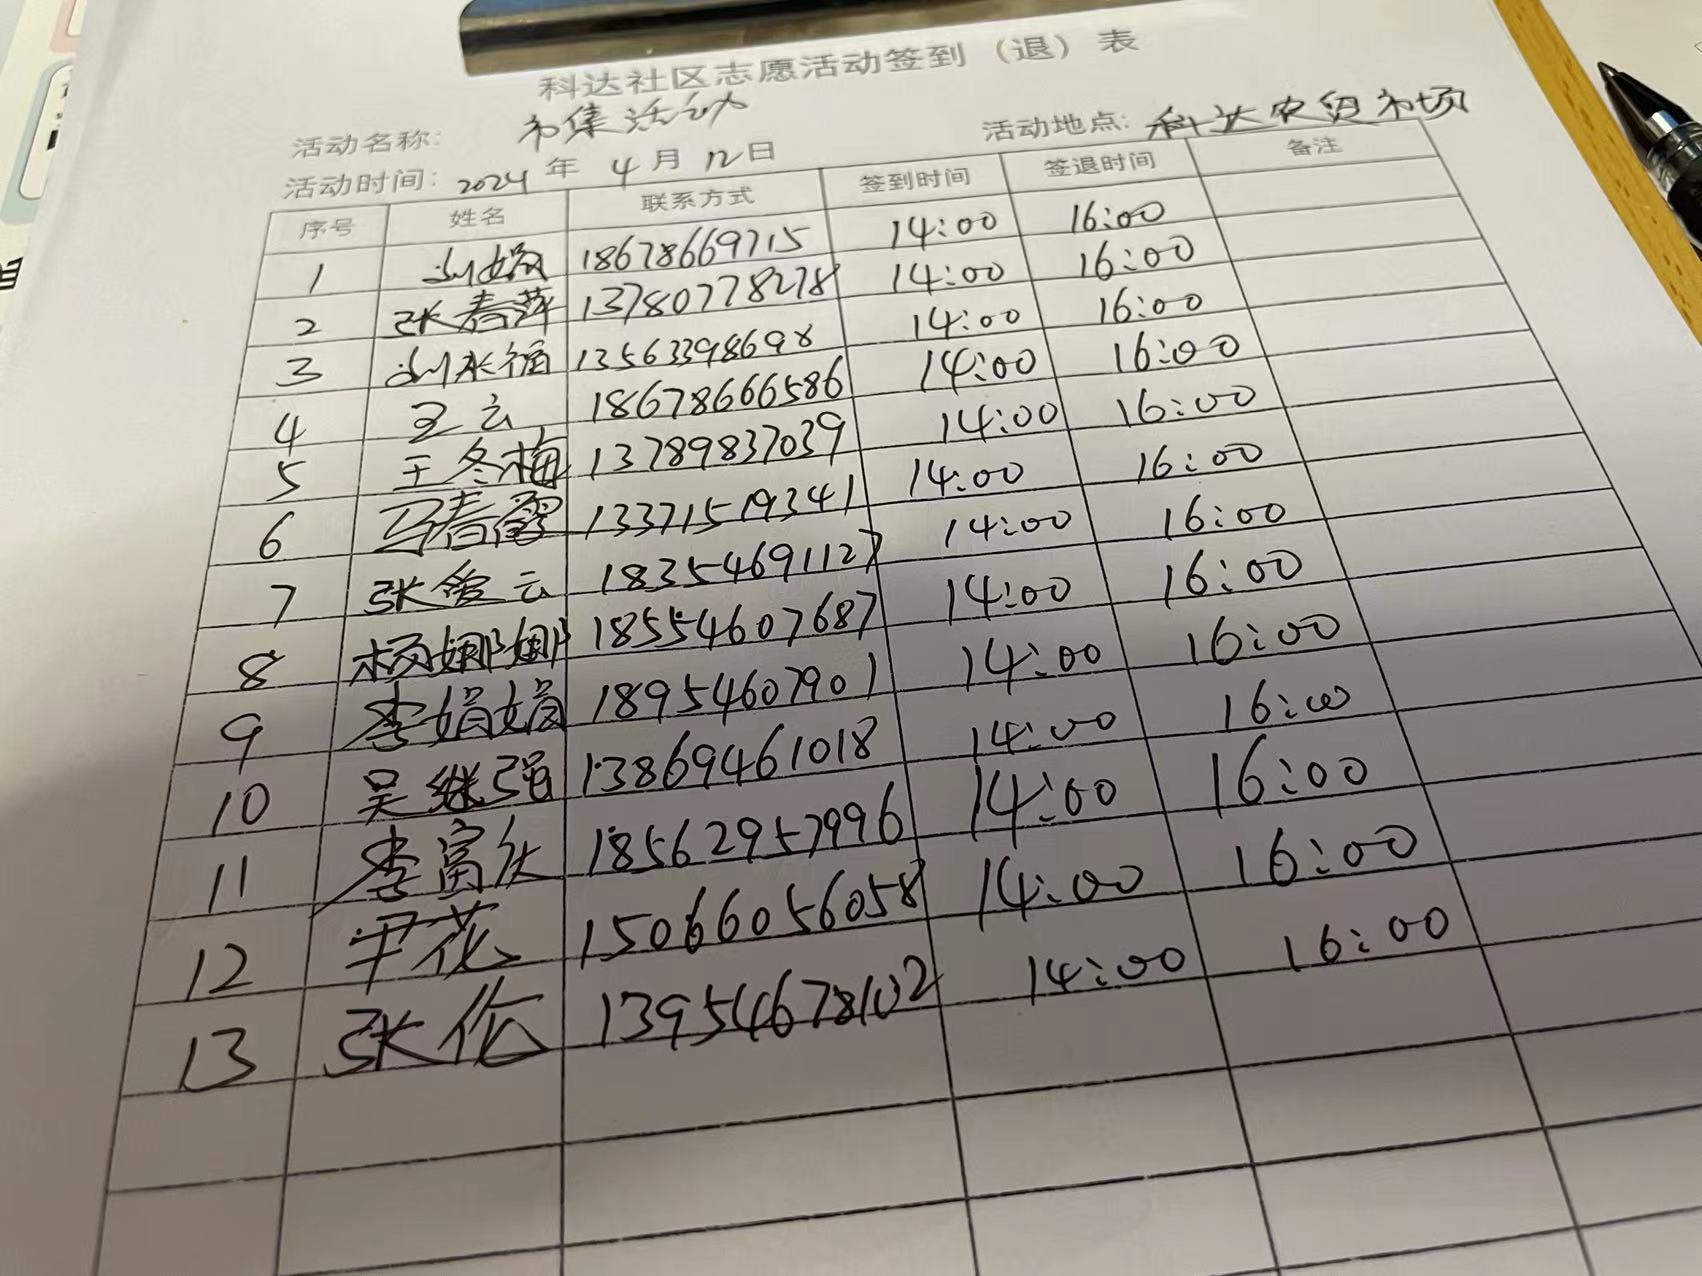 科达社区志愿活动签到（退）表
活动名称： 市集活动 活动地点: 科达农贸市场
活动时间：2024年4月12日
序号 姓名 联系方式 签到时间 签退时间 备注
1 刘娟 18678669715 14:00 16:00
2 张春萍 13780778278 14:00 16:00
3 刘永福 13563398698 14:00 16:00
4 王云 18678666586 14:00 16:00
5 王冬梅 13789837039 14:00 16:00
6 马春霞 13371519341 14:00 16:00
7 张爱云 18354691127 14:00 16:00
8 杨娜娜 18554607687 14:00 16:00
9 李娟娟 18954607901 14:00 16:00
10 吴继强 13869461018 14:00 16:00
11 李富庆 18562957996 14:00 16:00
12 尹花 15066056058 14:00 16:00
13 张伦 13954678102 14:00 16:00